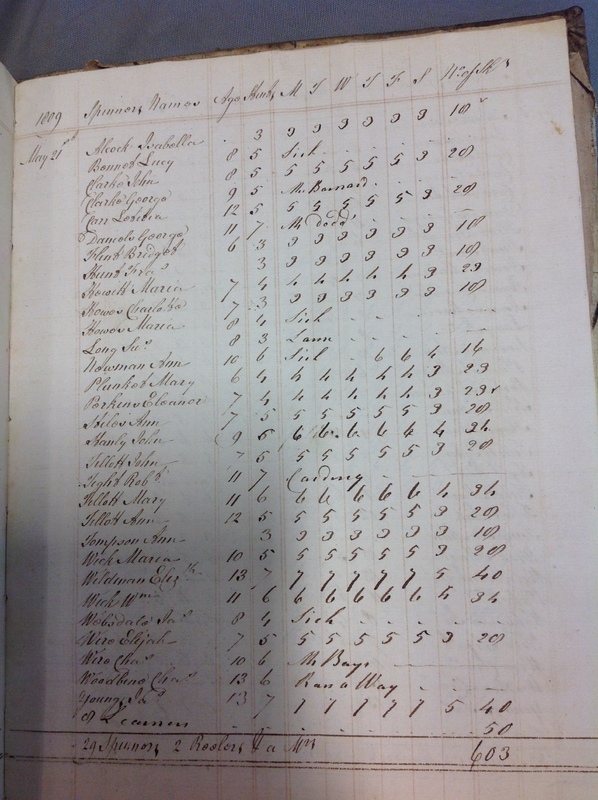 1809 Spinners Names Age Stint M T W T F S No of Sk.s
May 21st Alcock Isabella - 3 3 3 3 3 3 3 18
Bonnet Lucy 8 5 Sick - - - -
Clarke John 8 5 5 5 5 5 5 3 28
Clarke George 9 5 Mr Barnard -
Carr Letitia 12 5 5 5 5 5 5 3 28
Daniels George 11 7 Mr Dodd
Flint Bridget 6 3 3 3 3 3 3 3 18
Hunt Fras 3 3 3 3 3 3 3 18
Howitt Maria 7 4 4 4 4 4 4 3 23
Howes Charlotte 7 3 3 3 3 3 3 3 18
Howes Maria 8 4 Sick - - - -
Long Sus 8 3 Lame - - - -
Newman Ann 10 6 Sick - - 6 6 4 16
Plunket Mary 6 4 4 4 4 4 4 3 23
Perkins Eleanor 7 4 4 4 4 4 4 3 23
Stiles Ann 7 5 5 5 5 5 5 3 28
Stanly John 9 6 6 6 6 6 4 34
Tillott John 7 5 5 5 5 5 5 3 28
Tight Robt 11 7 Carding - - - -
Tillott Mary 11 6 6 6 6 6 6 4 34
Tillott Ann 12 5 5 5 5 5 5 3 28
Tompson Ann - 3 3 3 3 3 3 3 18
Wick Maria 10 5 5 5 5 5 5 3 28
Wildman Elizth 13 7 7 7 7 7 7 5 40
Wick Wm 11 6 6 6 6 6 6 4 34
Jas 8 4 Sick - - - -
Wire Elijah 7 5 5 5 5 5 5 3 28
Wire Chas 10 6 Mr Bays
Woodbine Chas 13 6 Ran a Way - - -
Young Jas 13 7 7 7 7 7 7 5 40
8 Learners - - - - - - 50
29 Spinners 2 Reelers & a Mrs 603